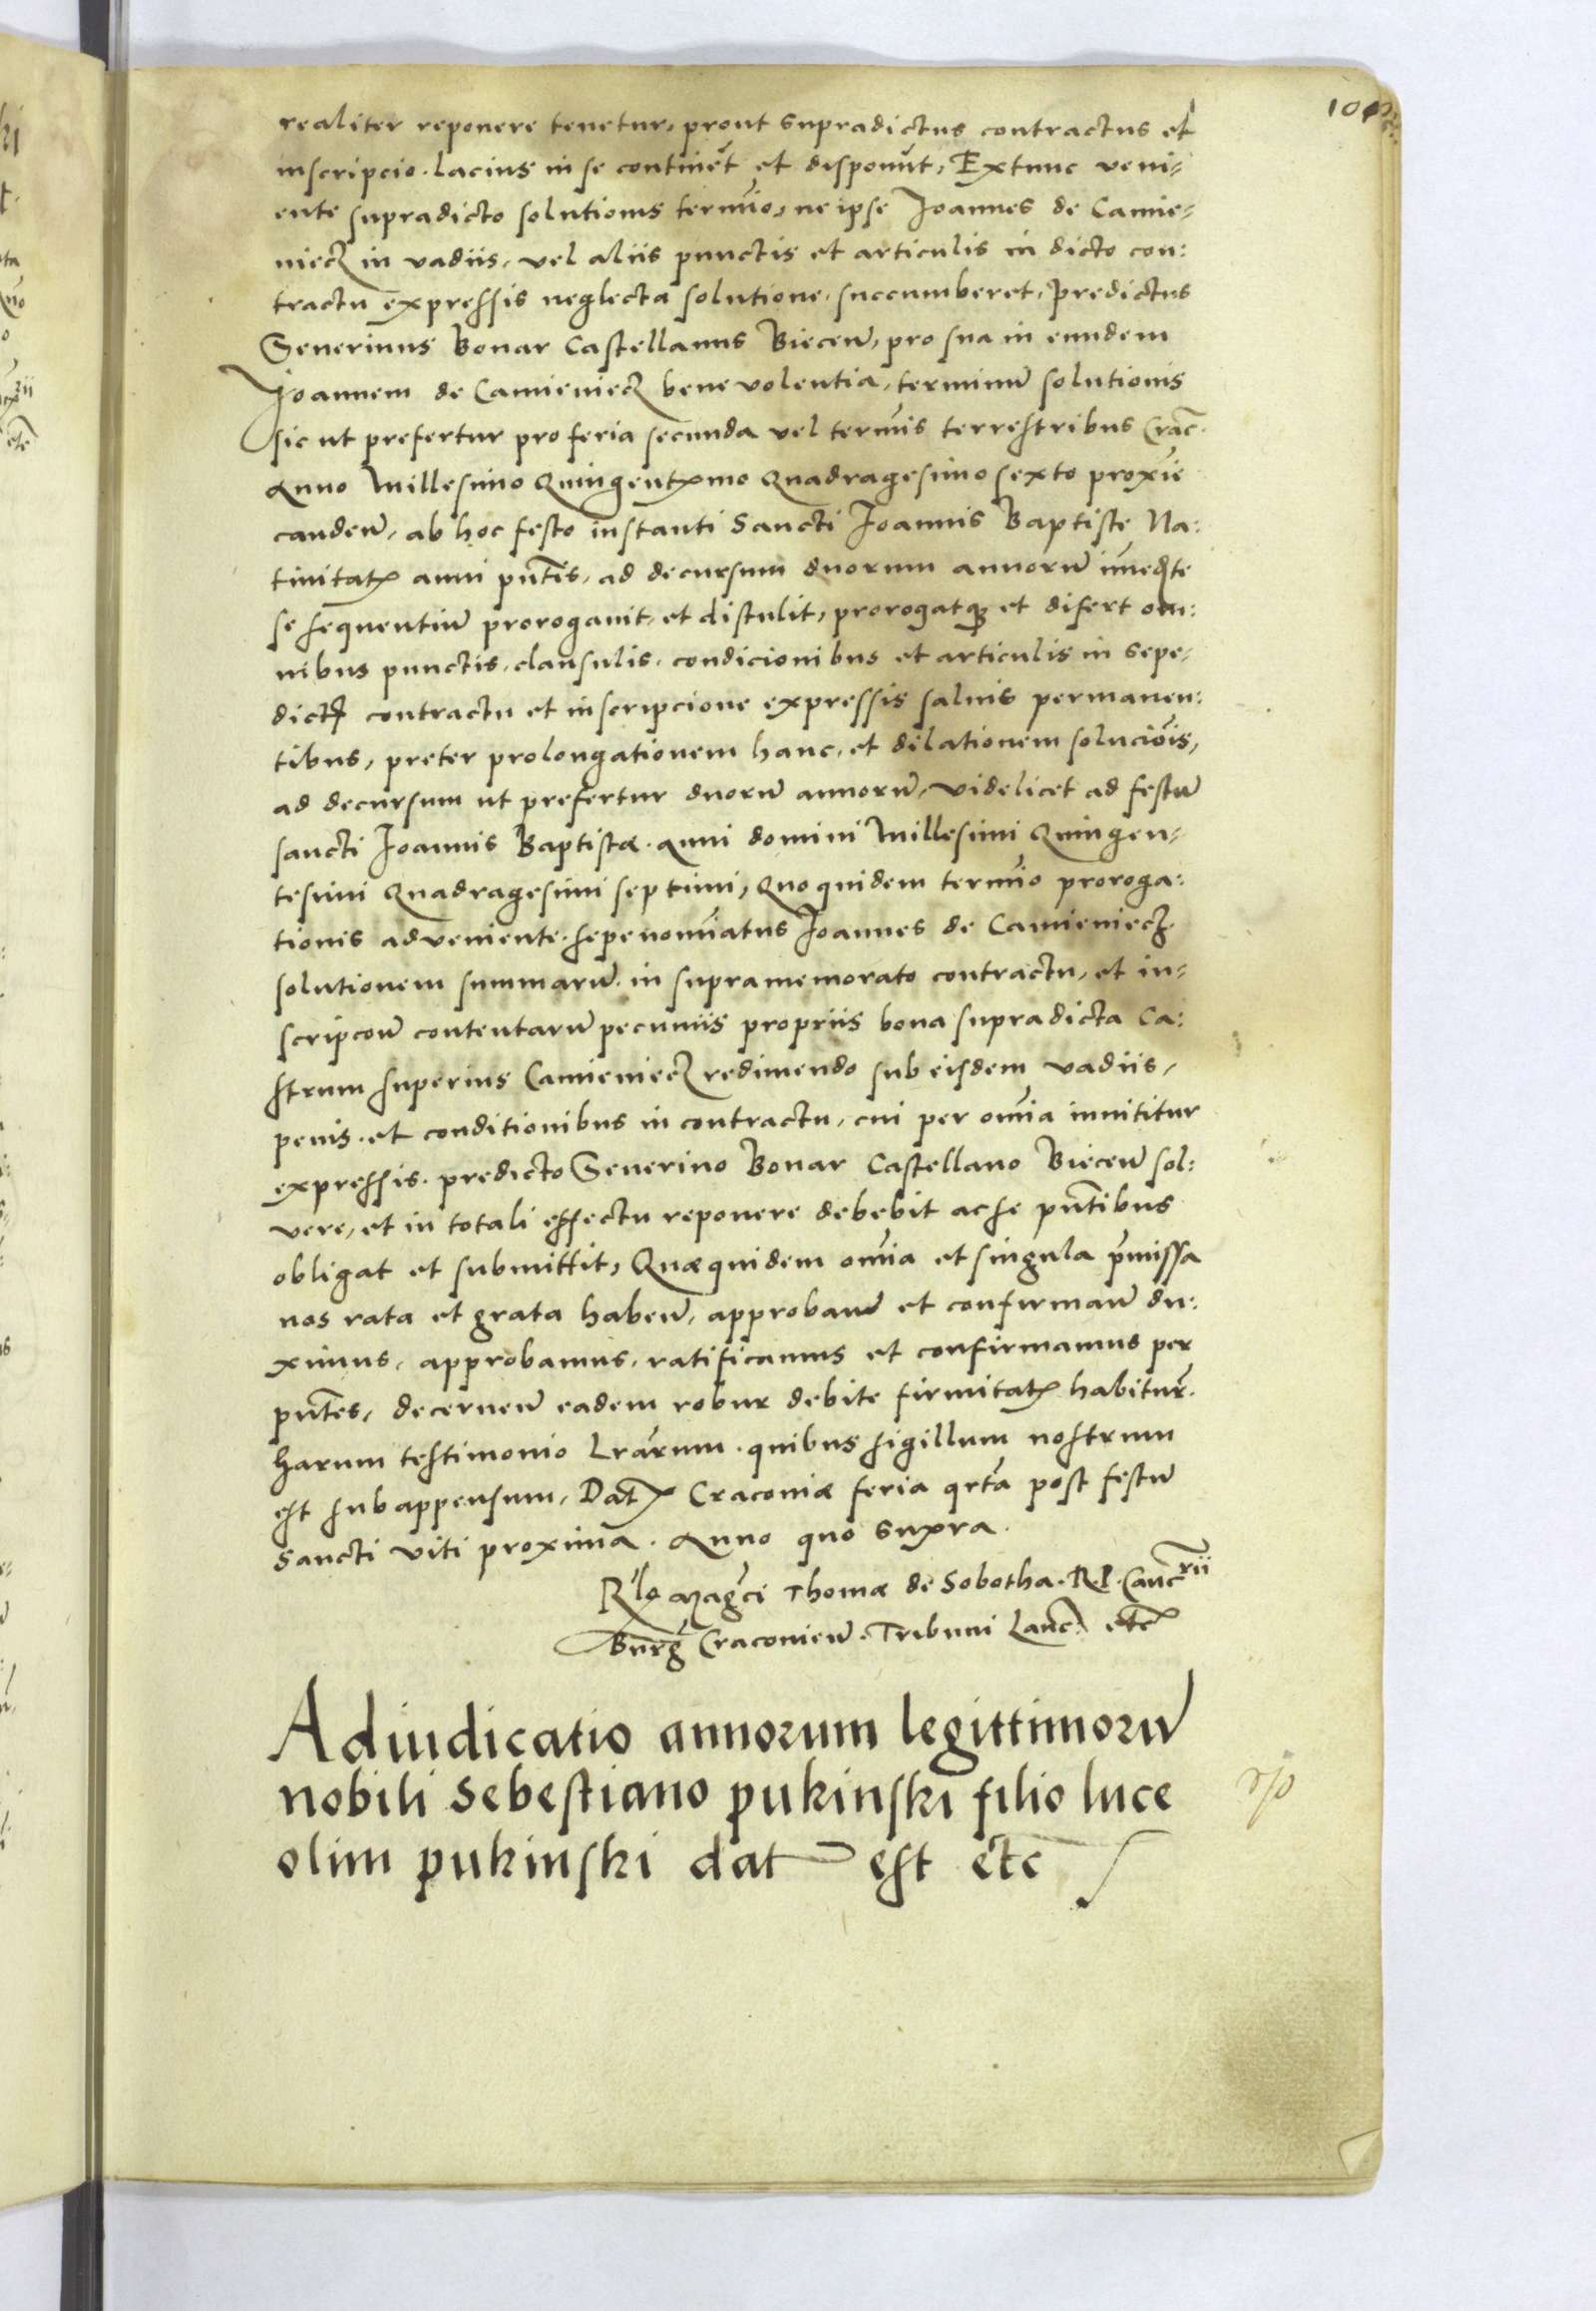 realiter reponere tenetur, prout supradictus contractus et
inscripcio. lacius in se continēt et disponūt, Extunc veni-
ente supradicto solutionis termīo, ne ipse Joannes de Camie-
niecz in vadiis, vel aliis punctis et articulis in dicto con:
tractu expressis neglecta solutione, succumberet, Predictus
Severinus Bonar Castellanus Biecen̄, pro sua in eundem
Joannem de Camieniecz benevolentia, terminū solutionis
sic ut prefertur pro feria secunda vel termīs terrestribus Crac̄.
Anno Millesimo Quingentꝭmo Quadragesimo sexto proxīe
canden̄, ab hoc festo instanti Sancti Joannis Baptiste Na:
tivitatꝭ anni pn̄tis, ad decursum duorum annorū īmed̄te
se sequentiū prorogavit, et distulit, prorogatqꝫ et difert om:
nibus punctis, clausulis, condicionibus et articulis in sepe-
dictꝭ contractu et inscripcione expressis salvis permanen:
tibus, preter prolongationem hanc, et dilationem soluciōis,
ad decursum ut prefertur duorū annorū, videlicet ad festū
sancti Joannis Baptistæ. Anni domini Millesimi Quingen-
tesimi Quadragesimi septimi, Quo quidem termīo proroga:
tionis adveniente. sepenomīatus Joannes de Camieniecz.
solutionem summarū. in supramemorato contractu, et in-
scripcōe contentarū pecuniis propriis bona supradicta Ca:
strum superius Camieniecz redimendo sub eisdem vadiis,
penis. et conditionibus in contractu, cui per om̄ia innititur
expressis. predicto Severino Bonar Castellano Biecen̄ sol:
vere, et in totali effectu reponere debebit ac se pn̄tibus
obligat et submittit, Quæ quidem om̄ia et singula p̄missa
nos rata et grata haben̄, approbanđ et confirman̄ du:
ximus, approbamus, ratificamus et confirmamus per
pn̄tes, decernen̄ eadem robur debite firmitatꝭ habitur̄.
harum testimonio Lrārum. quibus sigillum nostrum
est subappensum, Datꝭ Cracoviæ feria qrta post festū
Sancti Viti proxima. Anno quo supra.
Rlo Magci Thomæ de Sobotha. R. P. Cancrii
Burḡ Cracovien̄. Tribuni Lanc̄: etc
Adiudicatio annorum legittimorū
nobili Sebestiano pukinski filio luce
olim pukinski dat est etc